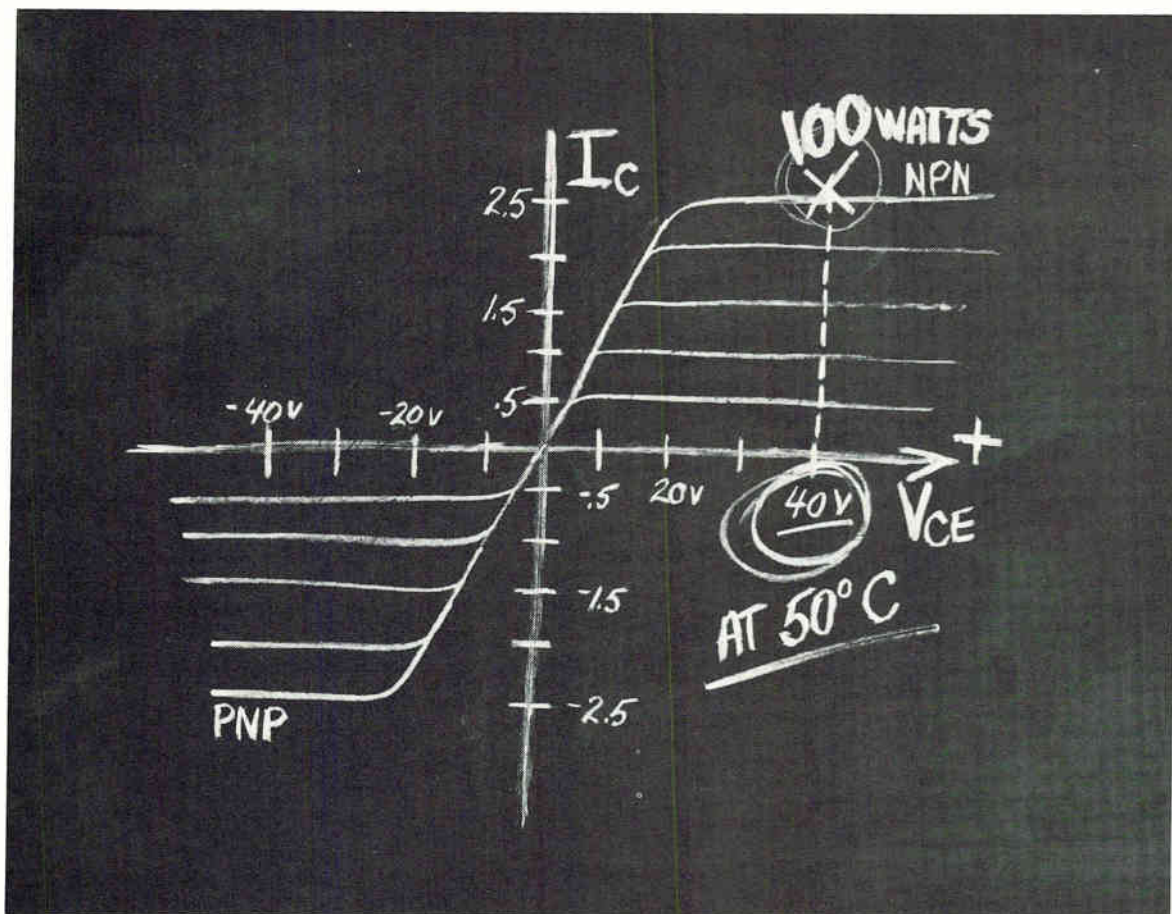 100 WATTS
NPN
I_C
2.5
1.5
.5
-40V
-20V
-.5
20V
40V
+
V_CE
AT 50° C
-1.5
-2.5
PNP